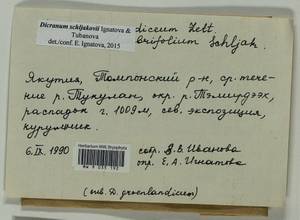 Dicranum schljakovii Ignatova &
Tubanova
det./conf. E. Ignatova, 2015
diceum Zett
brifolium Schljak.
Якутия, Томпонский р-н, ср. тече-
ние р. Тукулан, окр. р.
распадок г. 1009м, сев. экспозиция,
курумник.
6.IX.1990
Herbarium MW, Bryophyta
собр. В. Иванова
опр. Е.А. Игнатова
(sub. D. groenlandicum)